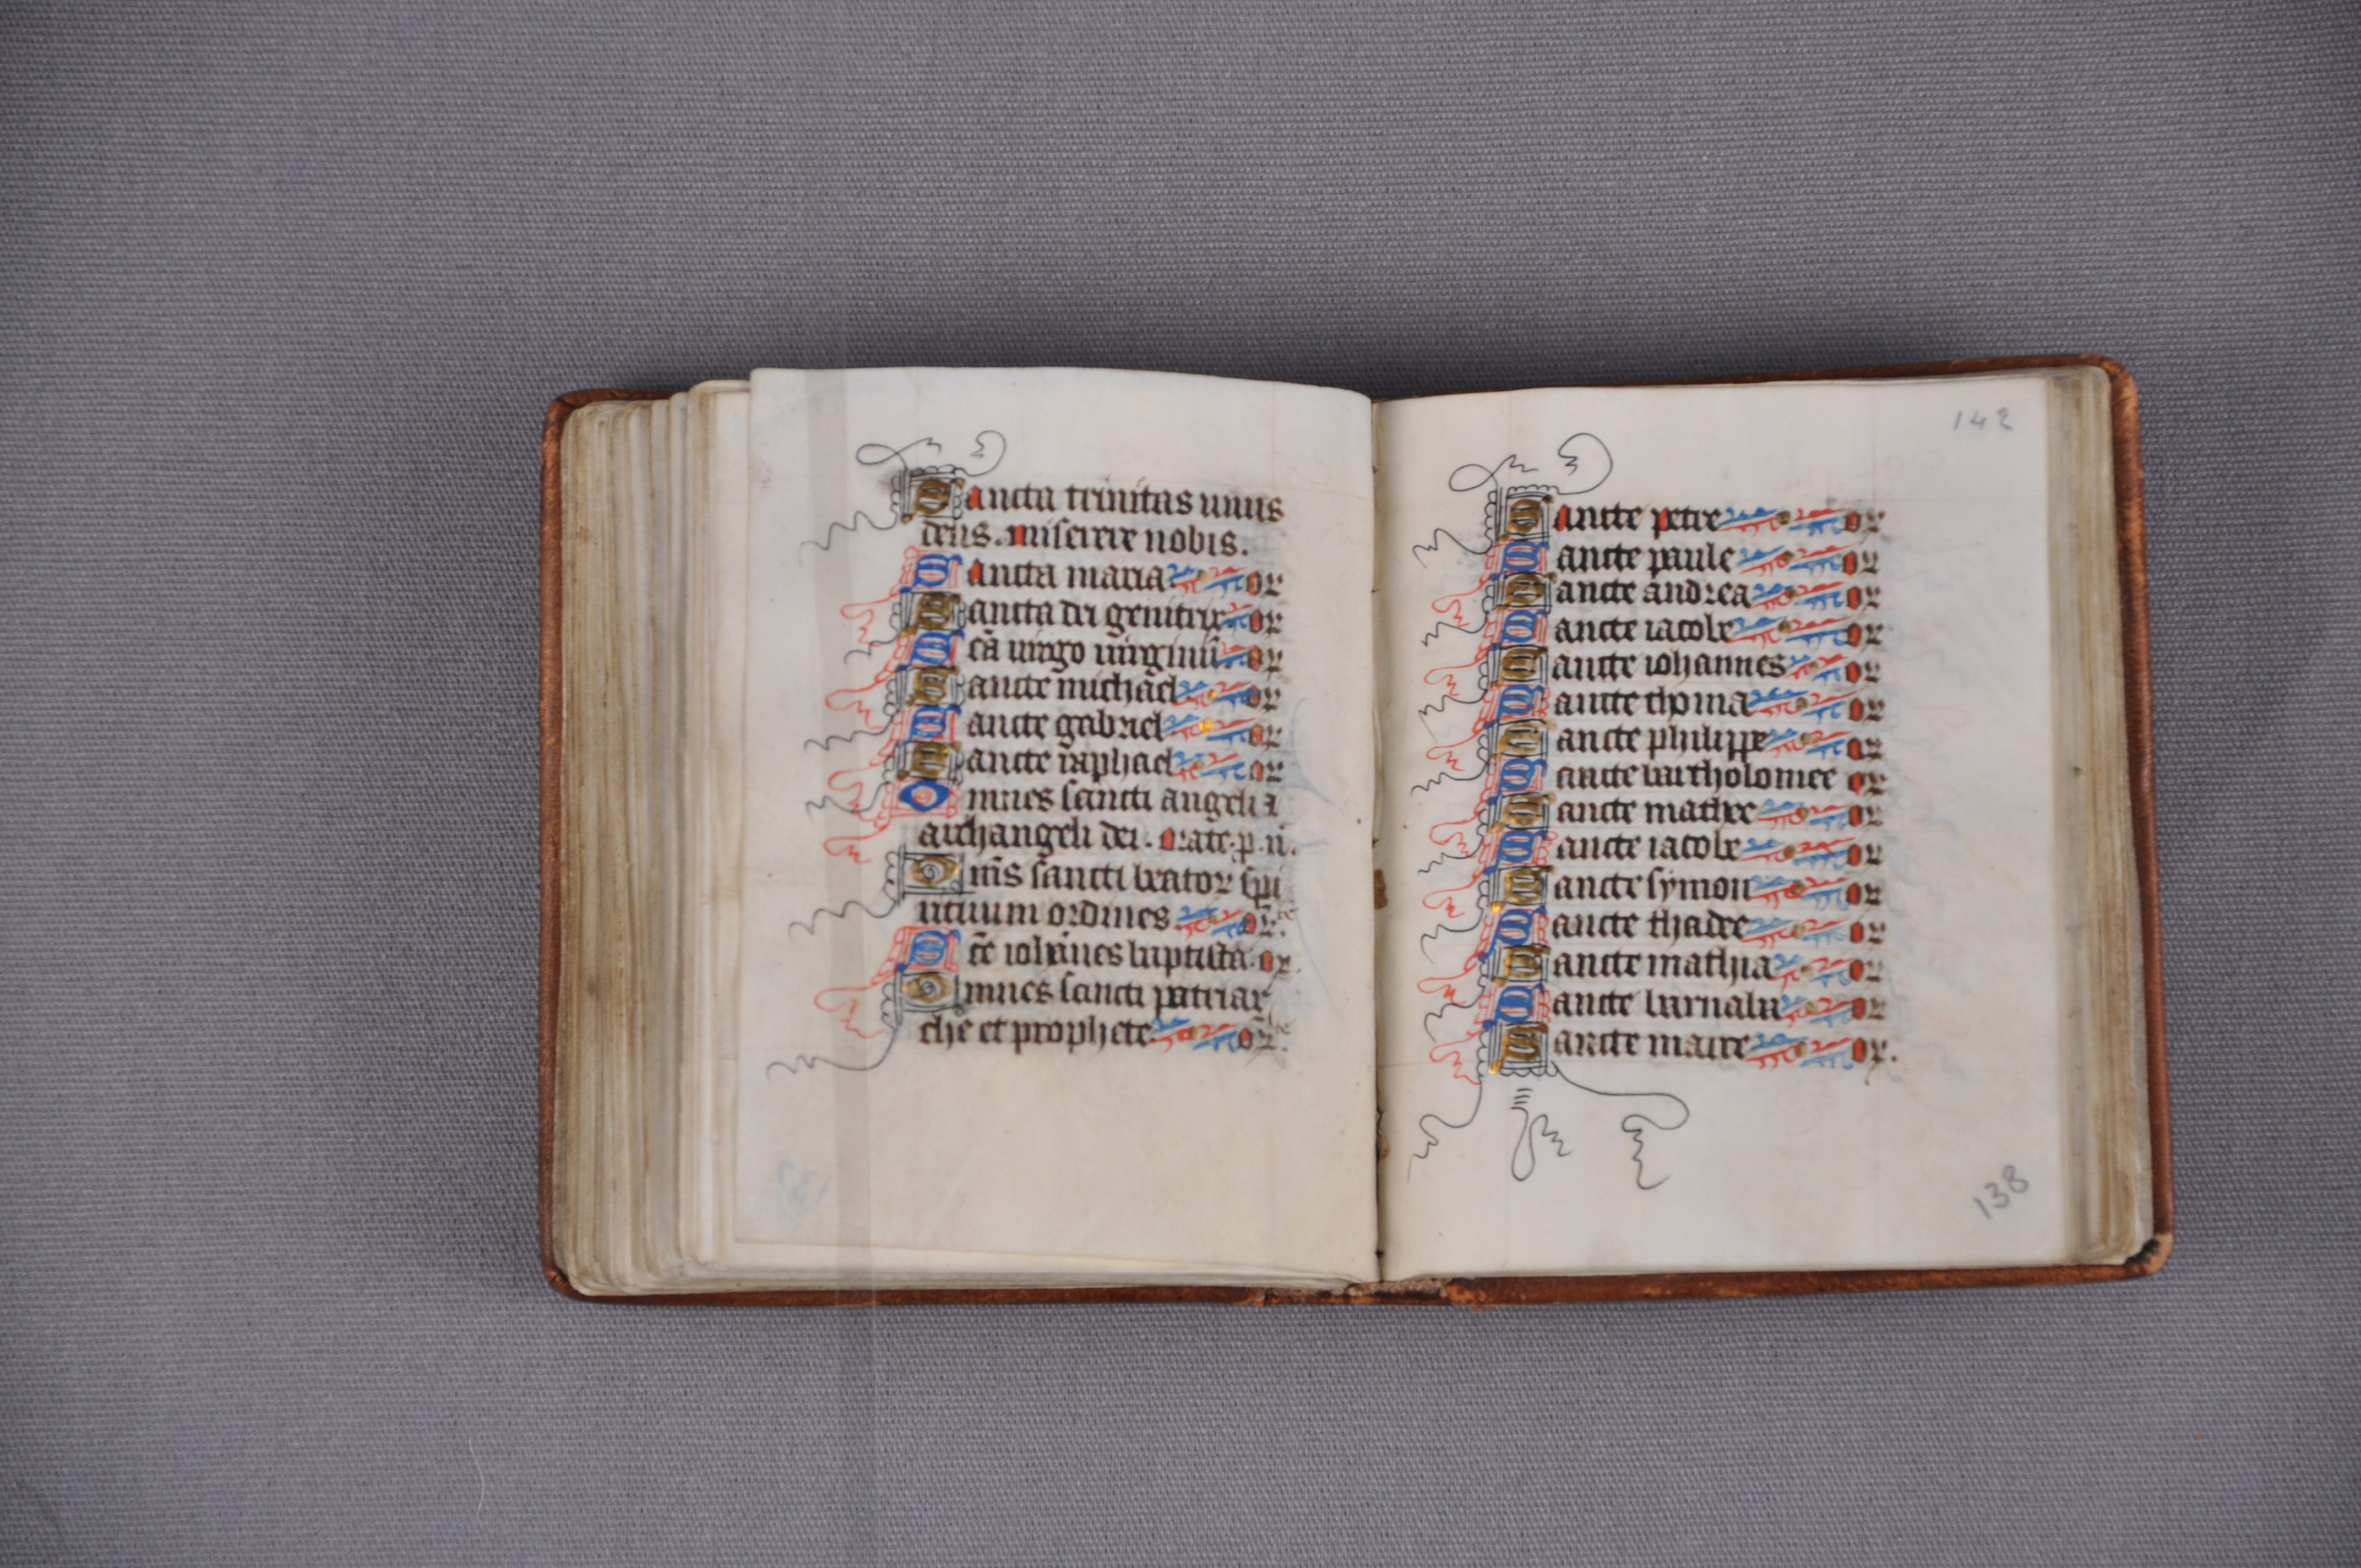 Sancta trinitas unus
deus. miserere nobis.
Sancta maria or
Sancta dei genitrix or
Scã uirgo uirginũ or
Sancte michael or
Sancte gabriel or
Sancte raphael or
Omnes sancti angeli ⁊
archangeli dei. orate. p. n̄.
Om̄s sancti beatoꝝ spi
rituum ordines or.te
Sc̄e ioh̄anes baptista. or.
Omnes sancti patriar
che et prophete or.te
142
Sancte petre or
Sancte paule or
Sancte andrea or
Sancte iacobe or
Sancte iohannes or
Sancte thoma or
Sancte philippe or
Sancte bartholomee or
Sancte mathee or
Sancte iacobe or
Sancte symon or
Sancte thadee or
Sancte mathia or
Sancte barnaba or
Sancte marce or.
138